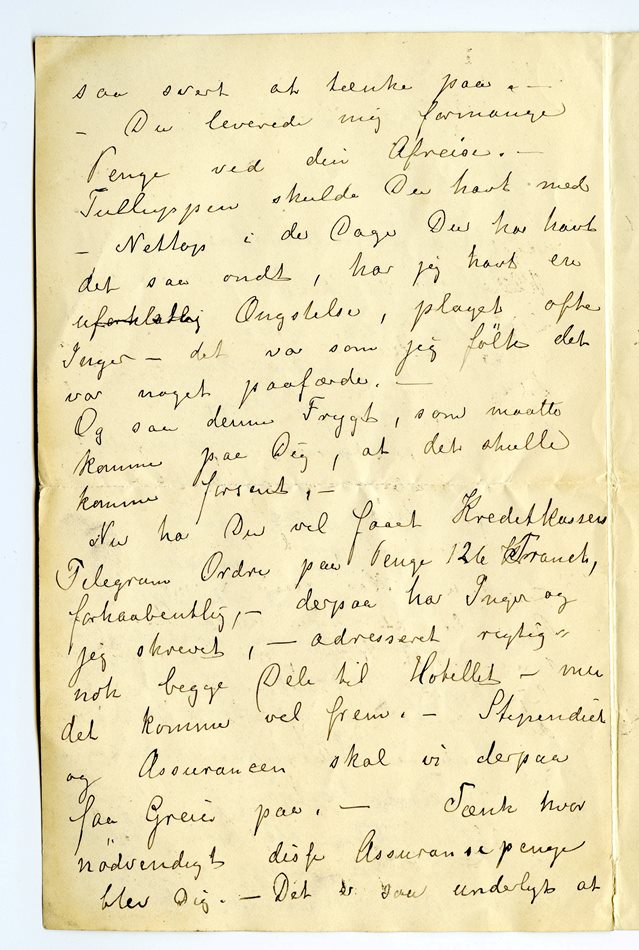 saa svert at tænke paa. —
— Du leverede mig formange
Penge ved din Afreise. —
Tulluppen skulde Du havt med
— Nettop i de Dage Du har havt
det saa ondt, har jeg havt en
uforklatlig Ongstelse, plaget ofte
Inger — det var som jeg fölte det
var noget paafærde. —
Og saa denne Frygt, som maatte
komme paa Dig, at det skulle
komme forsent. —
Nu har Du vel faaet Kreditkassens
Telegram Ordre paa Penge 126 Francs,
forhaabentlig, — derpaa har Inger og
jeg skrevet, — adresseret rigtig-
nok begge Dele til Hotellet — men
det kommer vel frem. — Stipendiet
og Assurancen skal vi derpaa
faa Greie paa. — Tænk hvor
nödvendigt disse Assuransepenge
blev Dig. — Det er saa underligt at